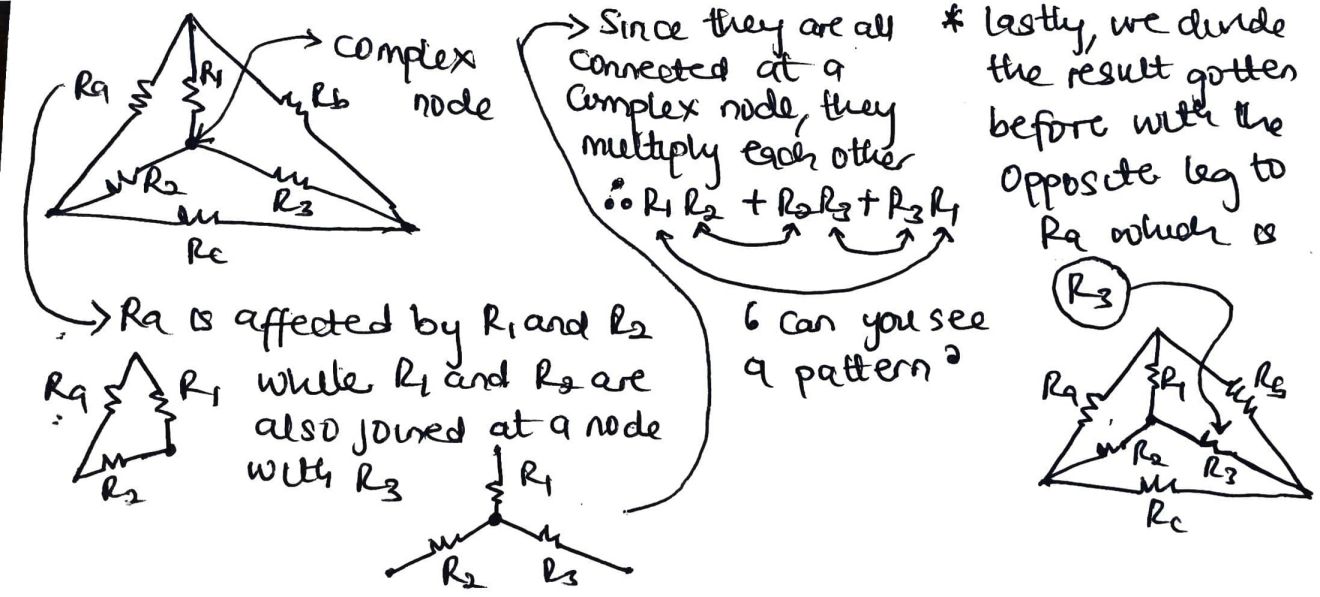 Ra
R1
Rb
complex
node
R2
R3
Rc
Ra is affected by R1 and R2
while R1 and R2 are
also joined at a node
with R3
Ra
R1
R2
R1
R2
R3
Since they are all
connected at a
Complex node, they
multiply each other
∴ R1R2 + R2R3 + R3R1
" Can you see
a pattern "
* lastly, we divide
the result gotten
before with the
opposite leg to
Ra which is
R3
Ra
R1
Rb
R2
R3
Rc